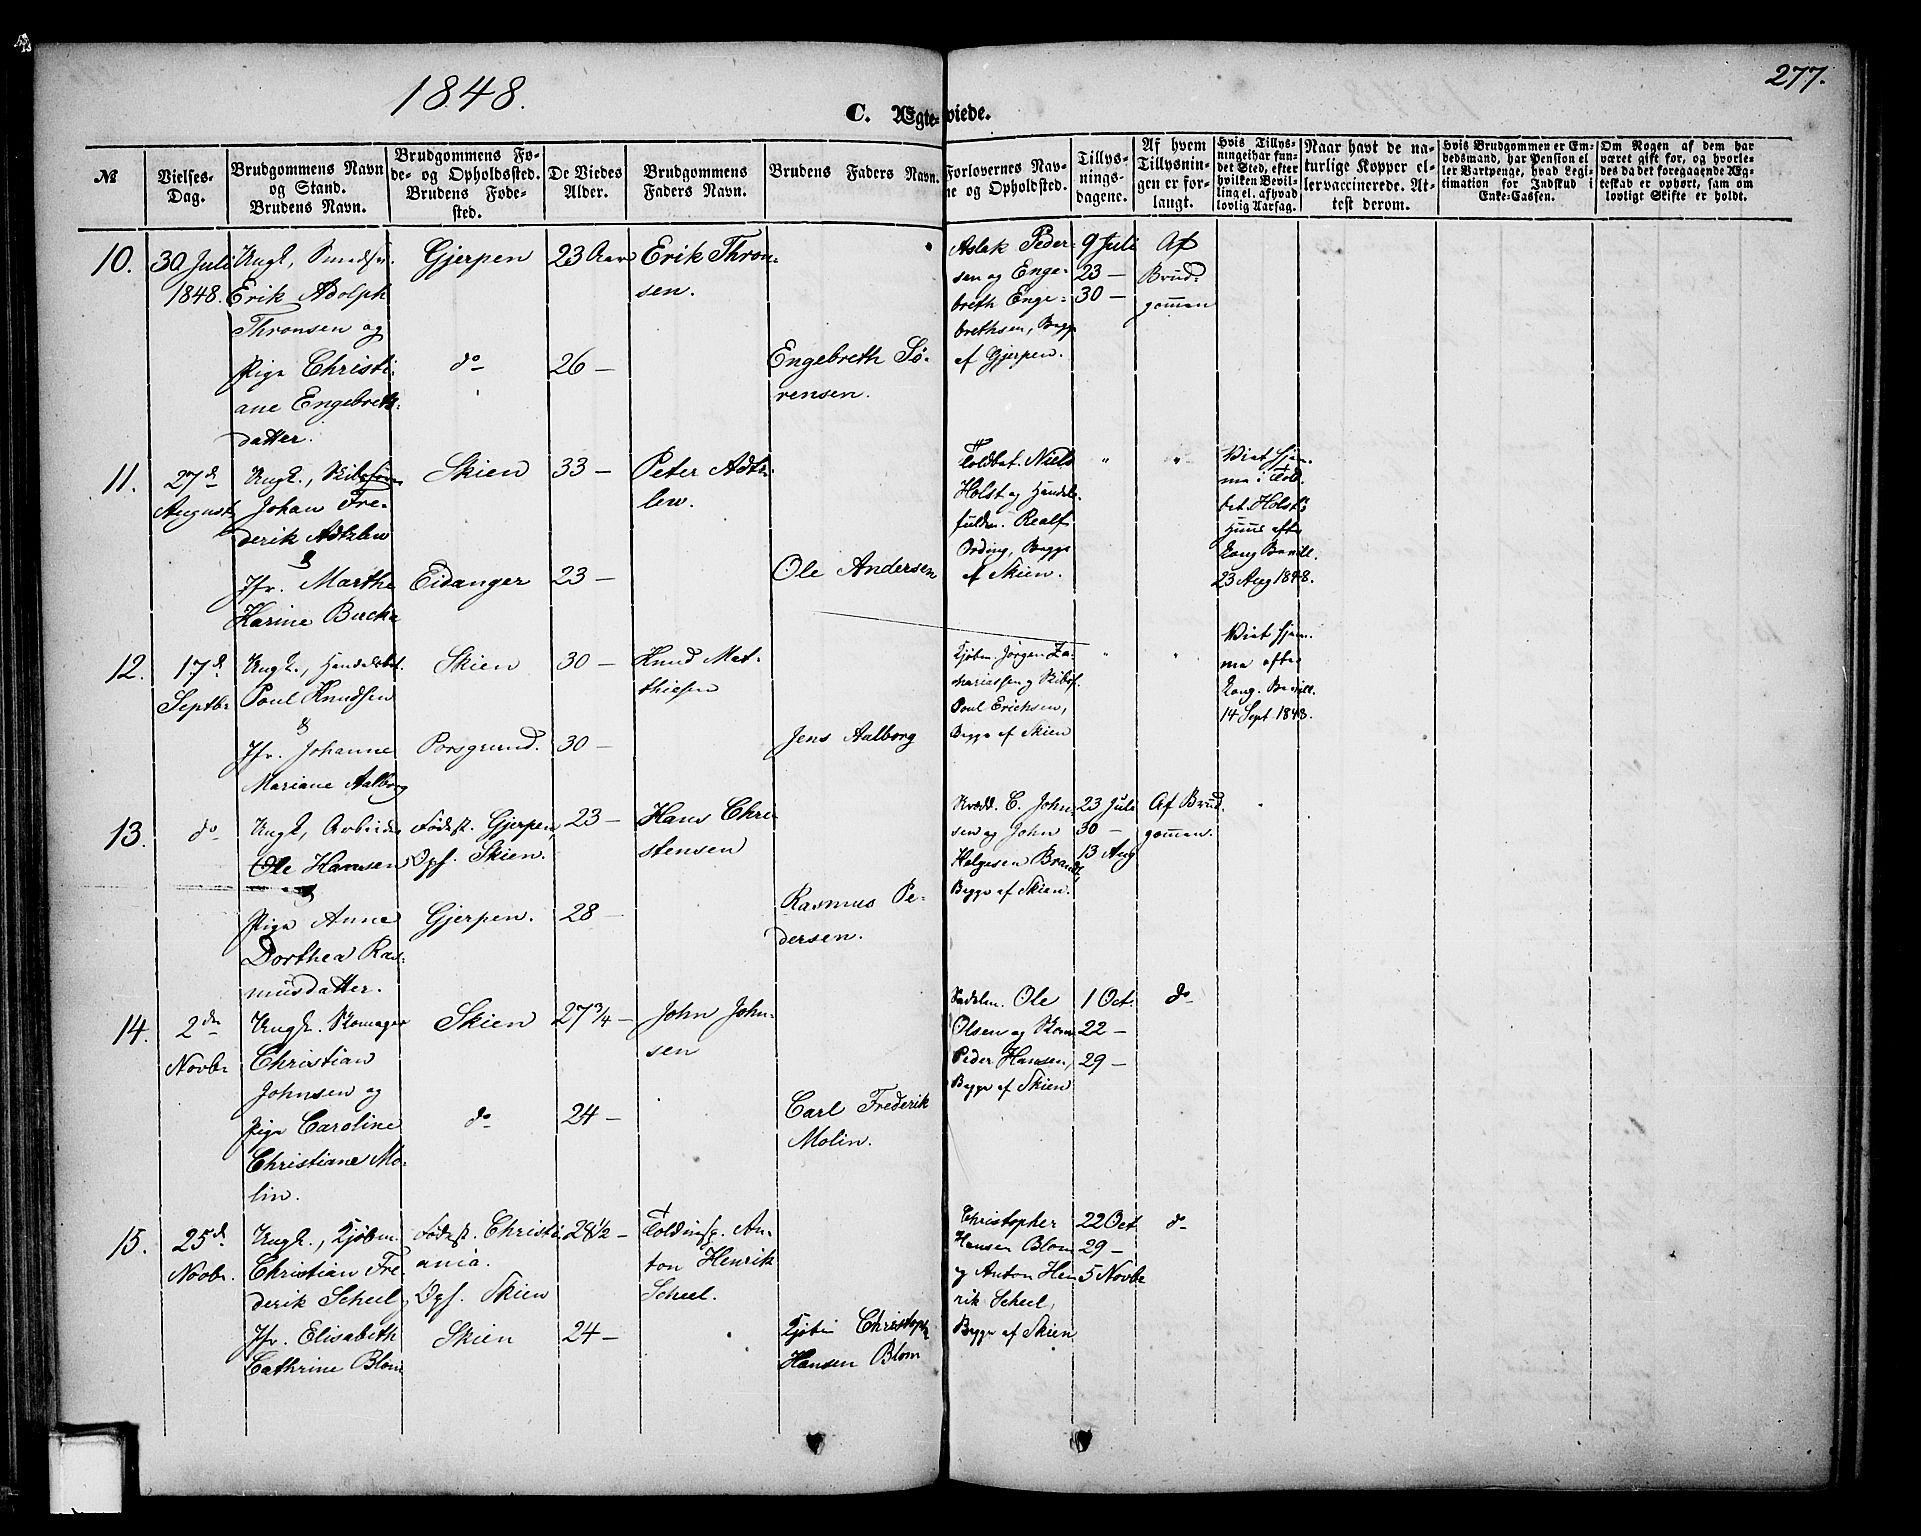 1848.
277.
C. Ægteviede.
№
Vielses-
Dag.
Brudgommens Navn
og Stand.
Brudens Navn.
Brudgommens Fø-
de- og Opholdssted.
Brudens Føde-
sted.
De Viedes
Alder.
Brudgommens
Faders Navn.
Brudens Faders Navn.
Forlovernes Nav-
ne og Opholdsted.
Tillys-
nings-
dagene.
Af hvem
Tillysnin-
gen er for-
langt.
Hvis Tillys-
ningeihar fun-
det Sted, efter
hvilken Bevil-
ling el. afhvad
lovlig Aarsag.
Naar havt de na-
turlige Kopper el-
lervaccinerede. At-
test derom.
Hvis Brudgommen er Em-
bedsmand, har Pension el
ler Vartpenge, hvad Legi-
timation for Indskud i
Enke-Cassen.
Om Nogen af dem har
været gift før, og hvorle-
des da det foregaaende Æg-
teskab er ophørt, samt om
lovligt Skifte er holdt.
10.
30 Juli
1848.
Ungk,
Erik Adolph
Thronsen og
Pige Christi-
ane Engebreths-
datter.
Gjerpen
do
23 Aar
26 —
Erik Thron-
sen.
Engebreth Sø-
rensen.
Aslak Peder-
sen og Enge-
breth Enge-
brethsen, Begge
af Gjerpen.
9 Juli
23 —
30 —
Af
Brud-
gommen
11.
27de
August
Ungk.,
Johan Fre-
derik Adtzlew
&
Jfr. Marthe
Karine Backe
Skien
Eidanger
33 —
23 —
Peter Adtz-
lew.
Ole Andersen
Toldbet. Niels
Holst og Handels-
fuldm. Realf
Ording, Begge
af Skien.
"
"
Viet hjem-
me i Told-
bet. Holsts
Huus efter
kong. Bevill.
23 Aug 1848.
12.
17de
Septbr
Ungk., Handelsbet.
Poul Knudsen
&
Jfr. Johanne
Mariane Aalborg
Skien
Porsgrund.
30 —
30 —
Knud Mat-
thiesen
Jens Aalborg
Kjøbm. Jørgen Za-
chariassen og Skibsf.
Poul Erichsen,
Begge af Skien
"
"
Viet hjem-
me efter
kong. Bevill.
14 Sept 1848.
13.
do
Ungk, Arbeider
Ole Hansen
Pige Anne
Dorthea Ras-
musdatter.
Fødest. Gjerpen,
Oph. Skien.
Gjerpen.
23 —
28 —
Hans Chri-
stensen
Rasmus Pe-
dersen.
C. John-
sen og John
Helgesen Brandt,
Begge af Skien.
23 Juli
30 —
13 Aug
Af Brud-
gommen.
14.
2den
Novbr
Ungk. Skomager
Christian
Johnsen og
Pige Caroline
Christiane Mo-
lin.
Skien
do
27 3/4 —
24 —
John John-
sen
Carl Frederik
Molin.
Sadelm. Ole
Olsen og Skom.
Peder Hansen,
Begge af Skien
1 Oct.
22 —
29 —
do
15.
25de
Novbr.
Ungk., Kjøbm.
Christian Fre-
derik Scheel,
Jfr. Elisabeth
Cathrine Blom
Fødest. Christi-
ania.
Oph. Skien
Skien
28 1/2 —
24 —
Toldinsp. An-
ton Henrik
Scheel.
Kjøbm Christoph
Hansen Blom
Christopher
Hansen Blom
og Anton Hen-
rik Scheel,
Begge af Skien
22 Oct.
29 —
5 Novbr
do